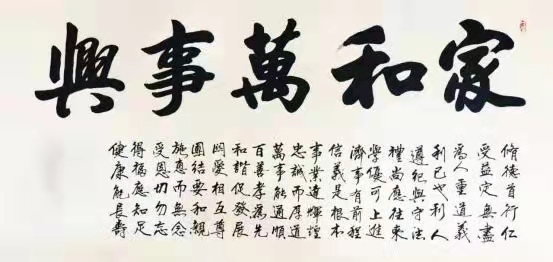 家和萬事興
脩德首行仁
受益定無盡
為人重道義
利己也利人
遵紀與守法
禮尚應往來
學優可上進
濟事有前程
信義是根本
事業達輝煌
忠誠而厚道
萬事能通順
百善孝為先
和諧促發展
関愛相互尊
團結要和親
施恩而無念
受恩切勿忘
得福應知足
健康能長壽